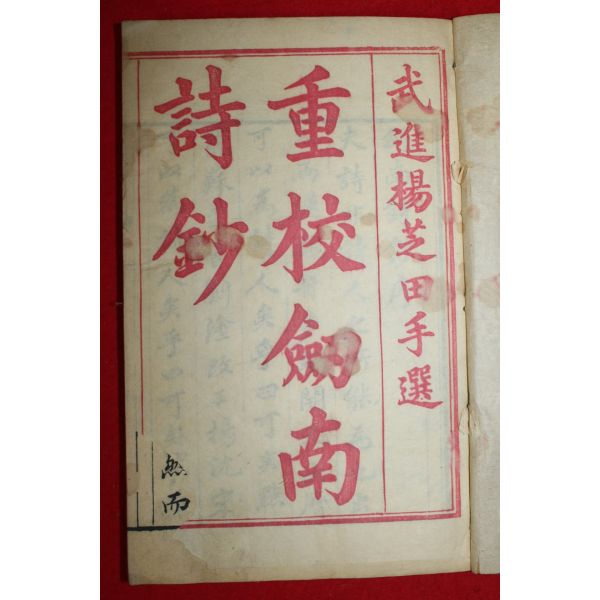 武進楊芝田手選
重校劒南
詩鈔
然而